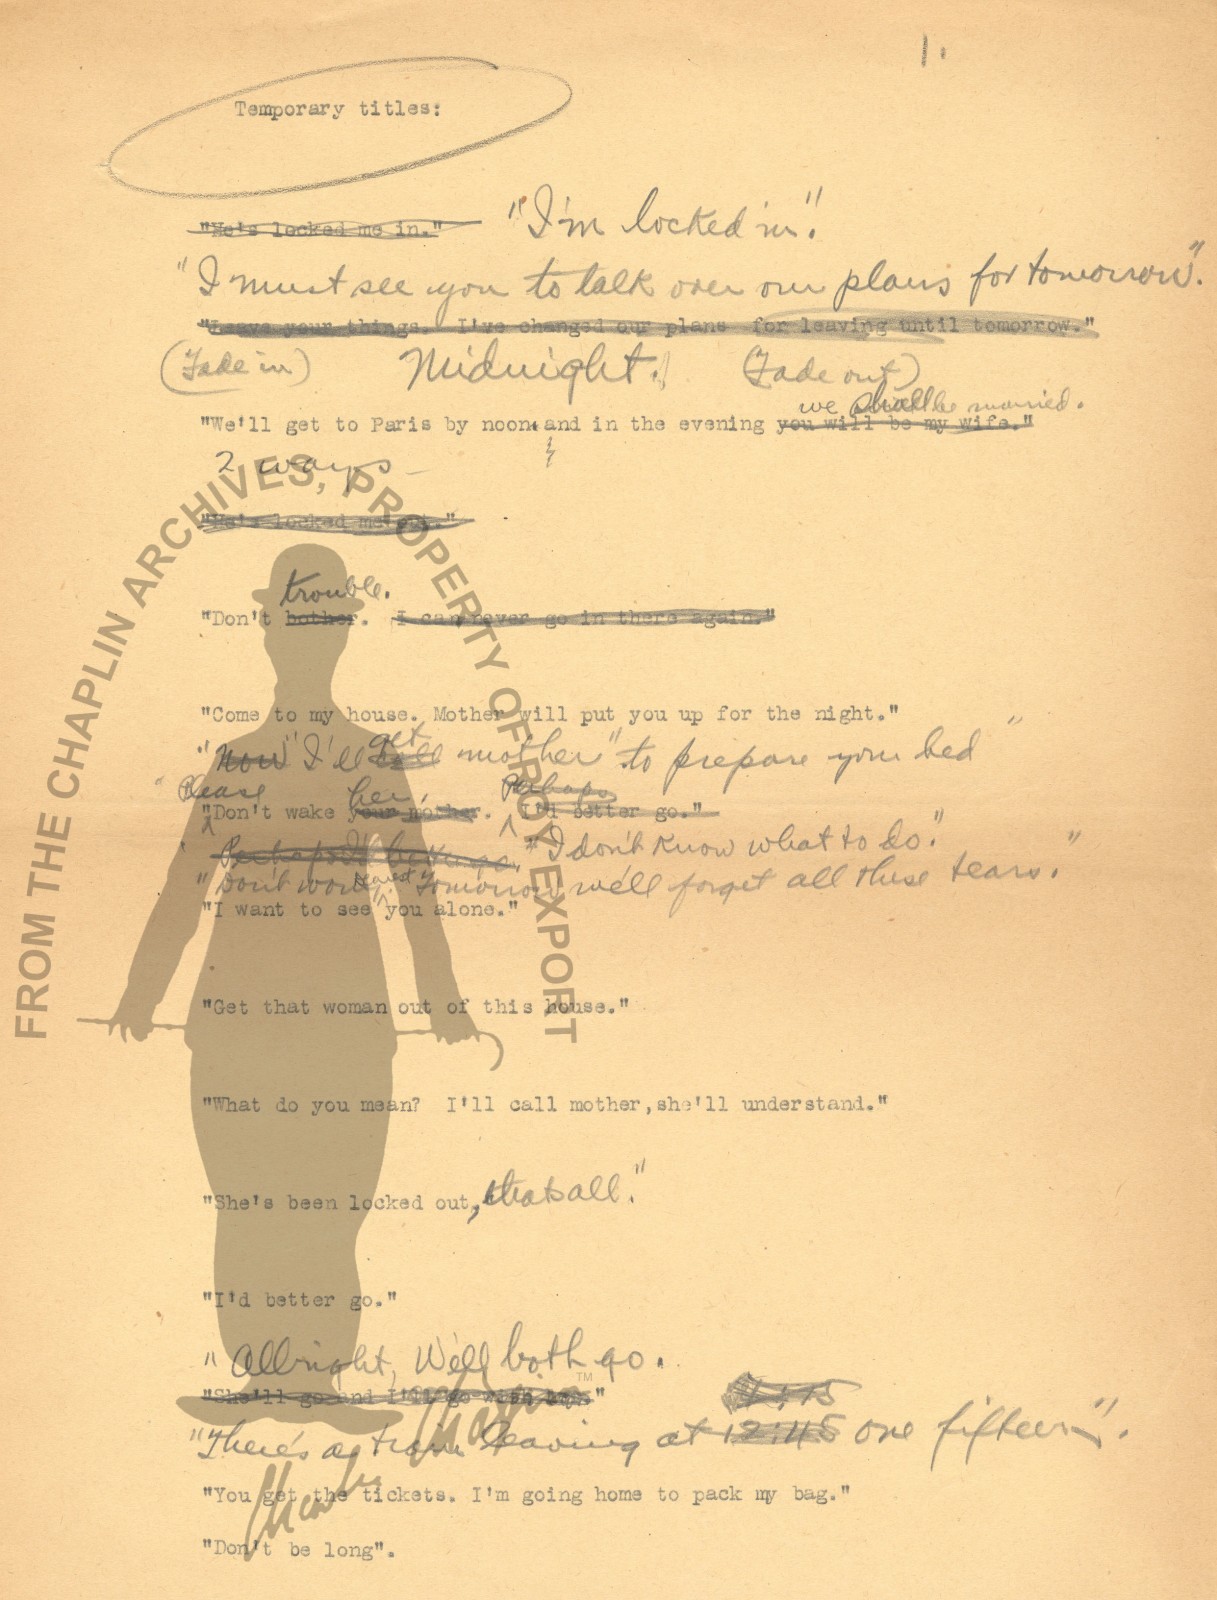 1.
Temporary titles:
"He's locked me in." "I'm locked in".
"I must see you to talk over our plans for tomorrow".
"Leave your things. I've changed our plans for leaving until tomorrow."
(Fade in) Midnight. (Fade out)
we shall be married.
"We'll get to Paris by noon. and in the evening you will be my wife."
2 ways
"He's locked me out."
trouble.
"Don't bother. I can never go in there again."
"Come to my house. Mother will put you up for the night."
get
"Now" I'll call mother" to prepare your bed"
"Please her. Perhaps
"Don't wake your mother. I'd better go."
"Perhaps I'd better go." "I don't know what to do."
dearest
"Don't worry Tomorrow we'll forget all these tears."
"I want to see you alone."
"Get that woman out of this house."
"What do you mean? I'll call mother,she'll understand."
"She's been locked out, thats all."
"I'd better go."
"Allright, We'll both go.
"She'll go and I'll go with her." 1:15
"There's a train leaving at 12:45 one fifteen".
"You get the tickets. I'm going home to pack my bag."
"Don't be long".
FROM THE CHAPLIN ARCHIVES, PROPERTY OF ROY EXPORT
Charles Chaplin
TM